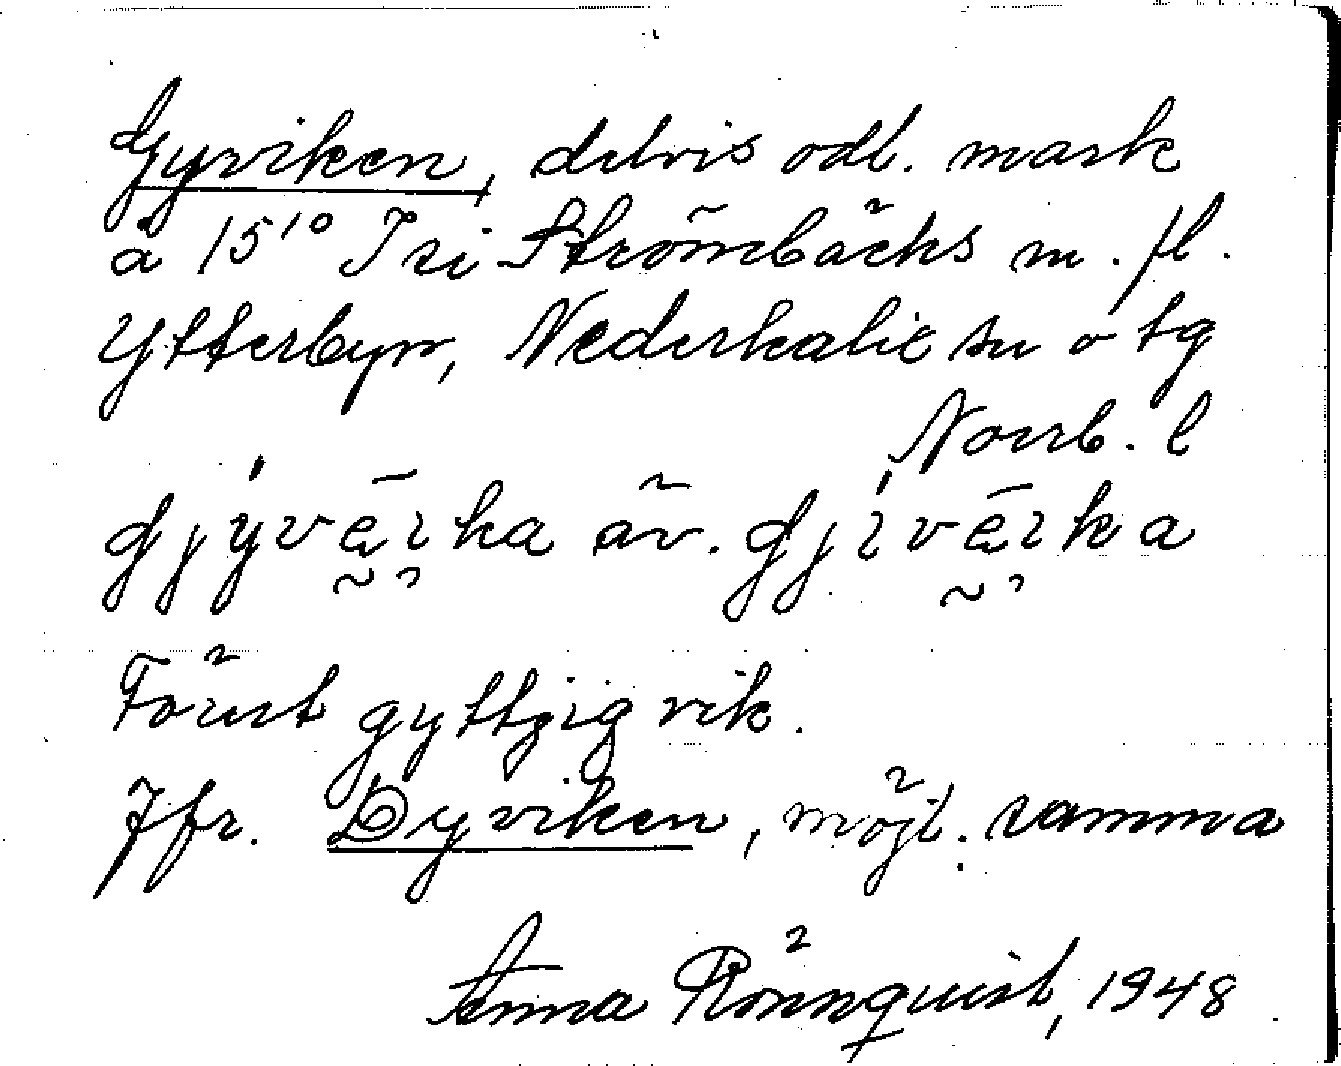 Gyviken, delvis odl. mark
å 15¹⁰ Isi Strömbäcks m. fl.
Ytterbyn, Nederkalix sn o tg
Norrb. l
gjyvēka äv. gjivēka
Förut gyttjig vik.
Jfr. Dyviken, möjl. samma
Anna Rönnquist, 1948